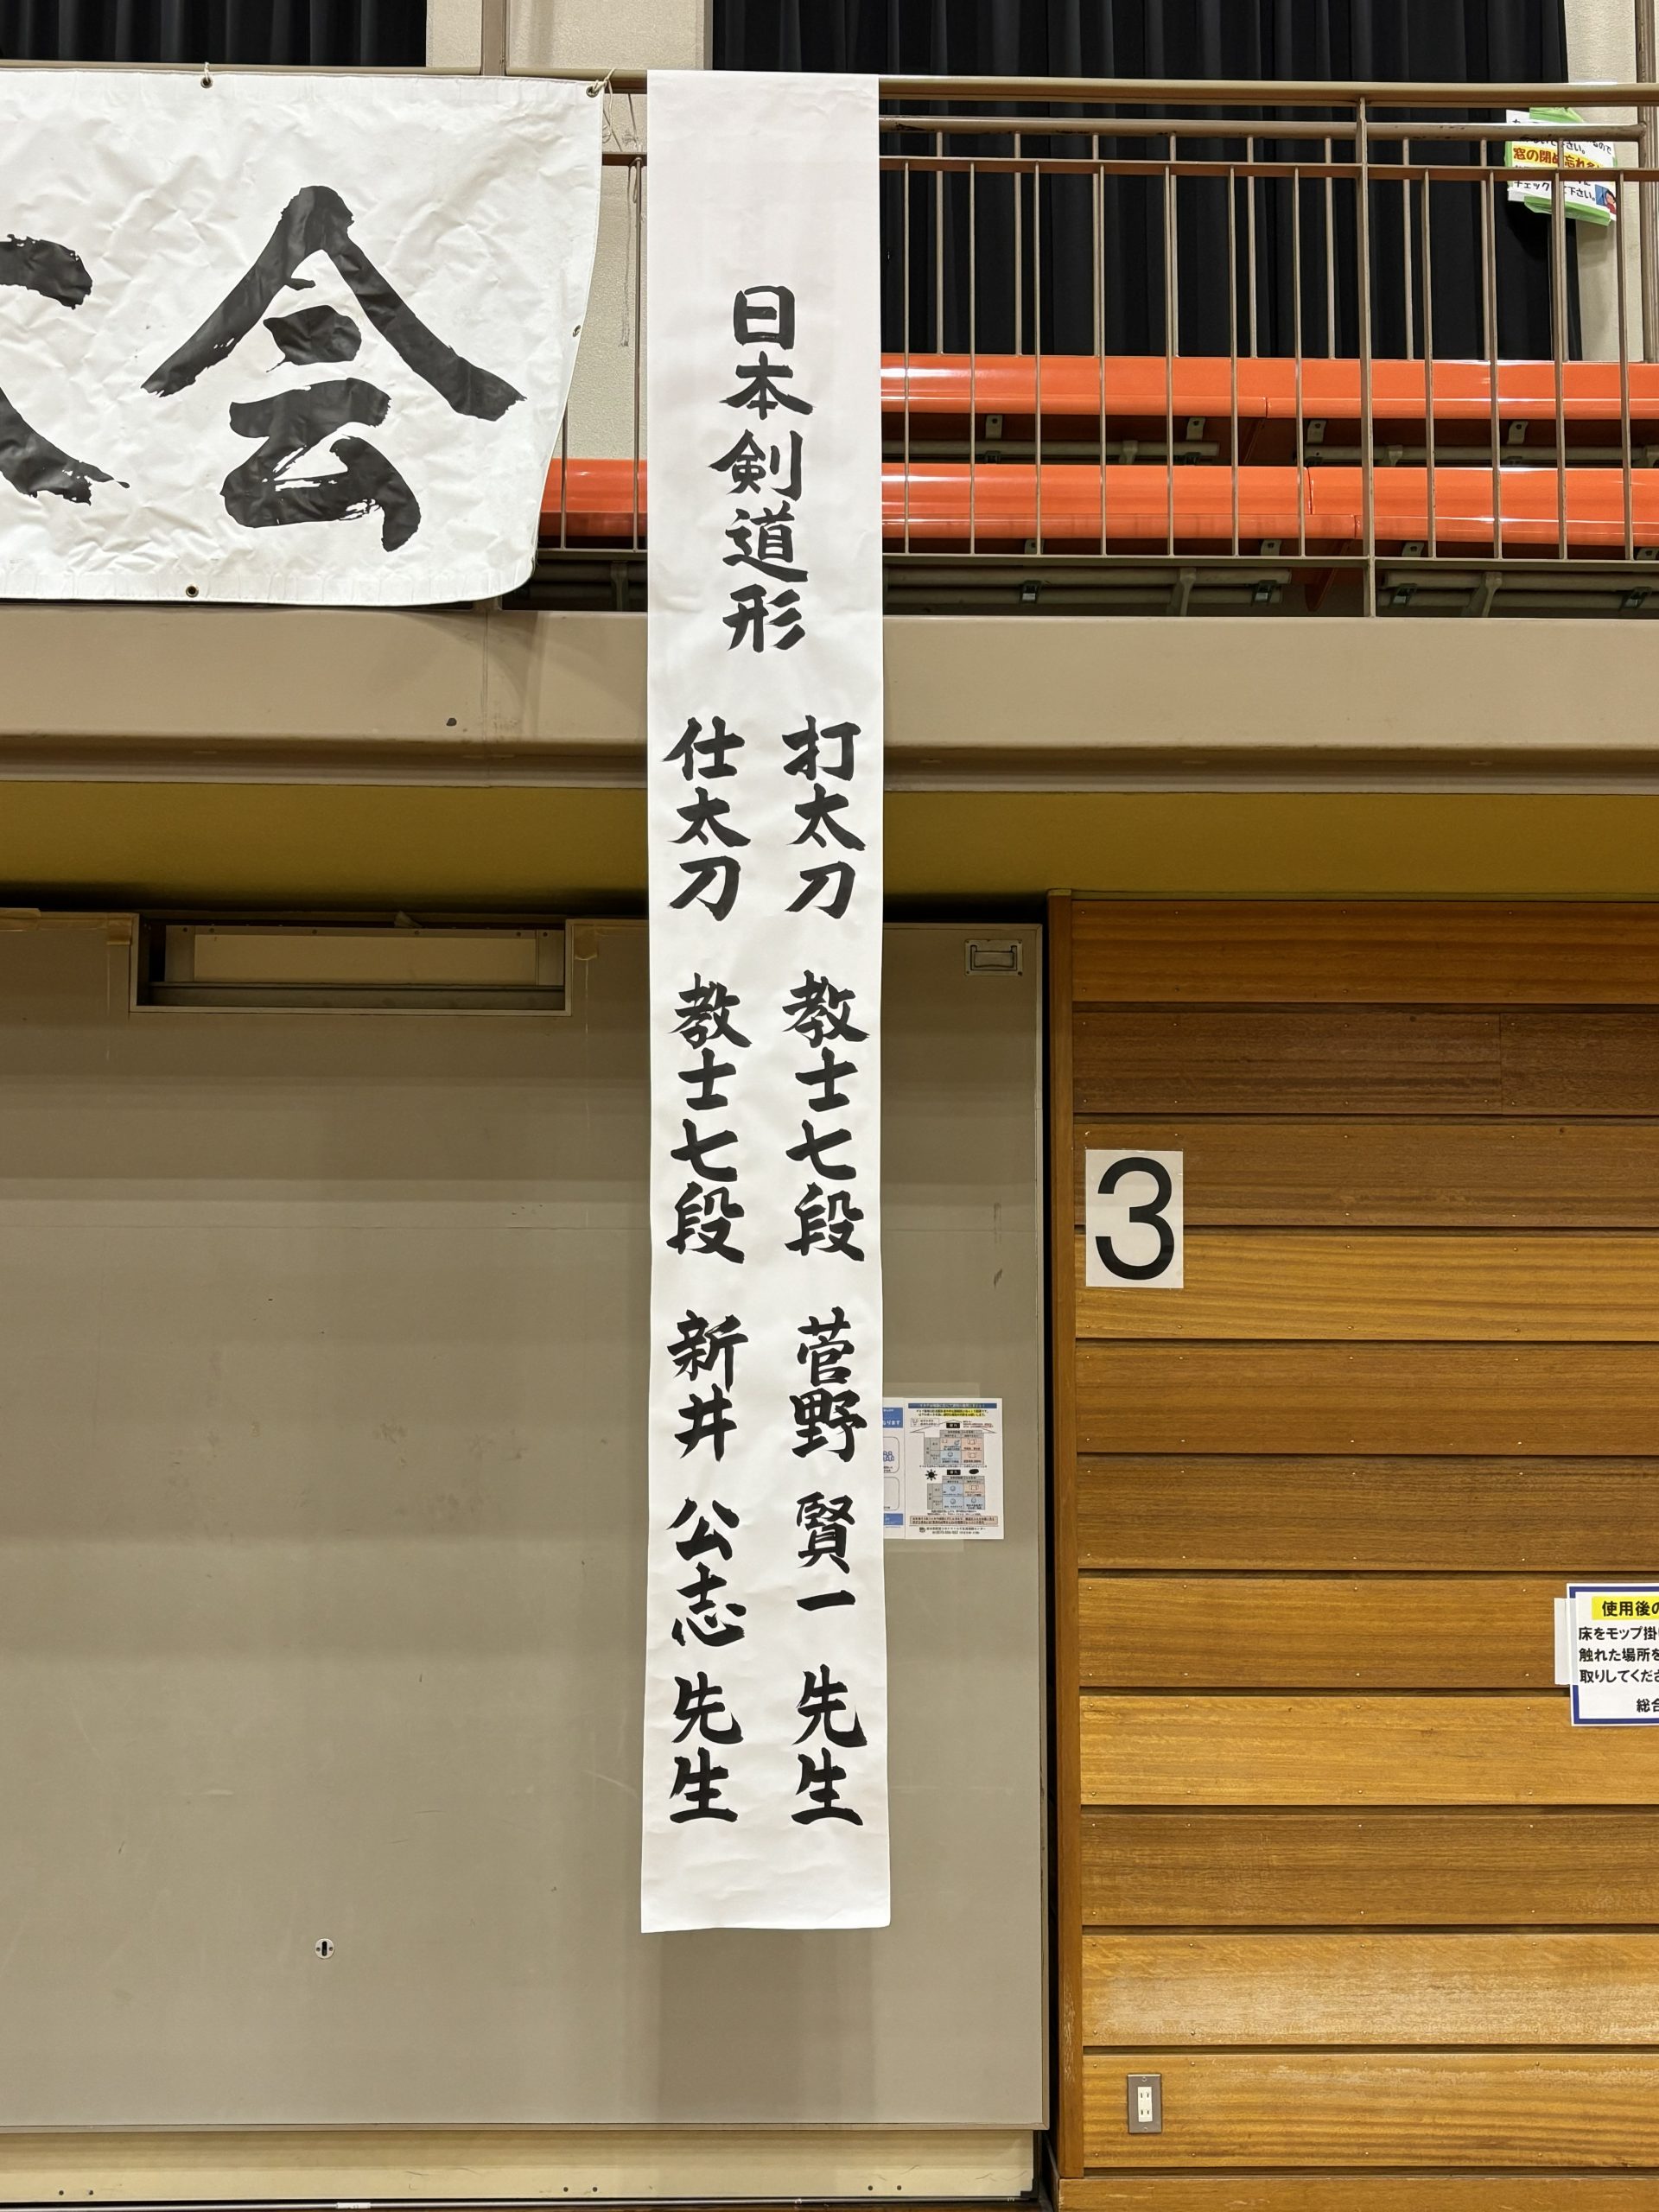 会
日本剣道形
打太刀 教士七段 菅野 賢一 先生
仕太刀 教士七段 新井 公志 先生
窓の閉め忘れ
チェック
下さい。
3
使用後の
床をモップ掛
触れた場所を
取りしてくださ
総合